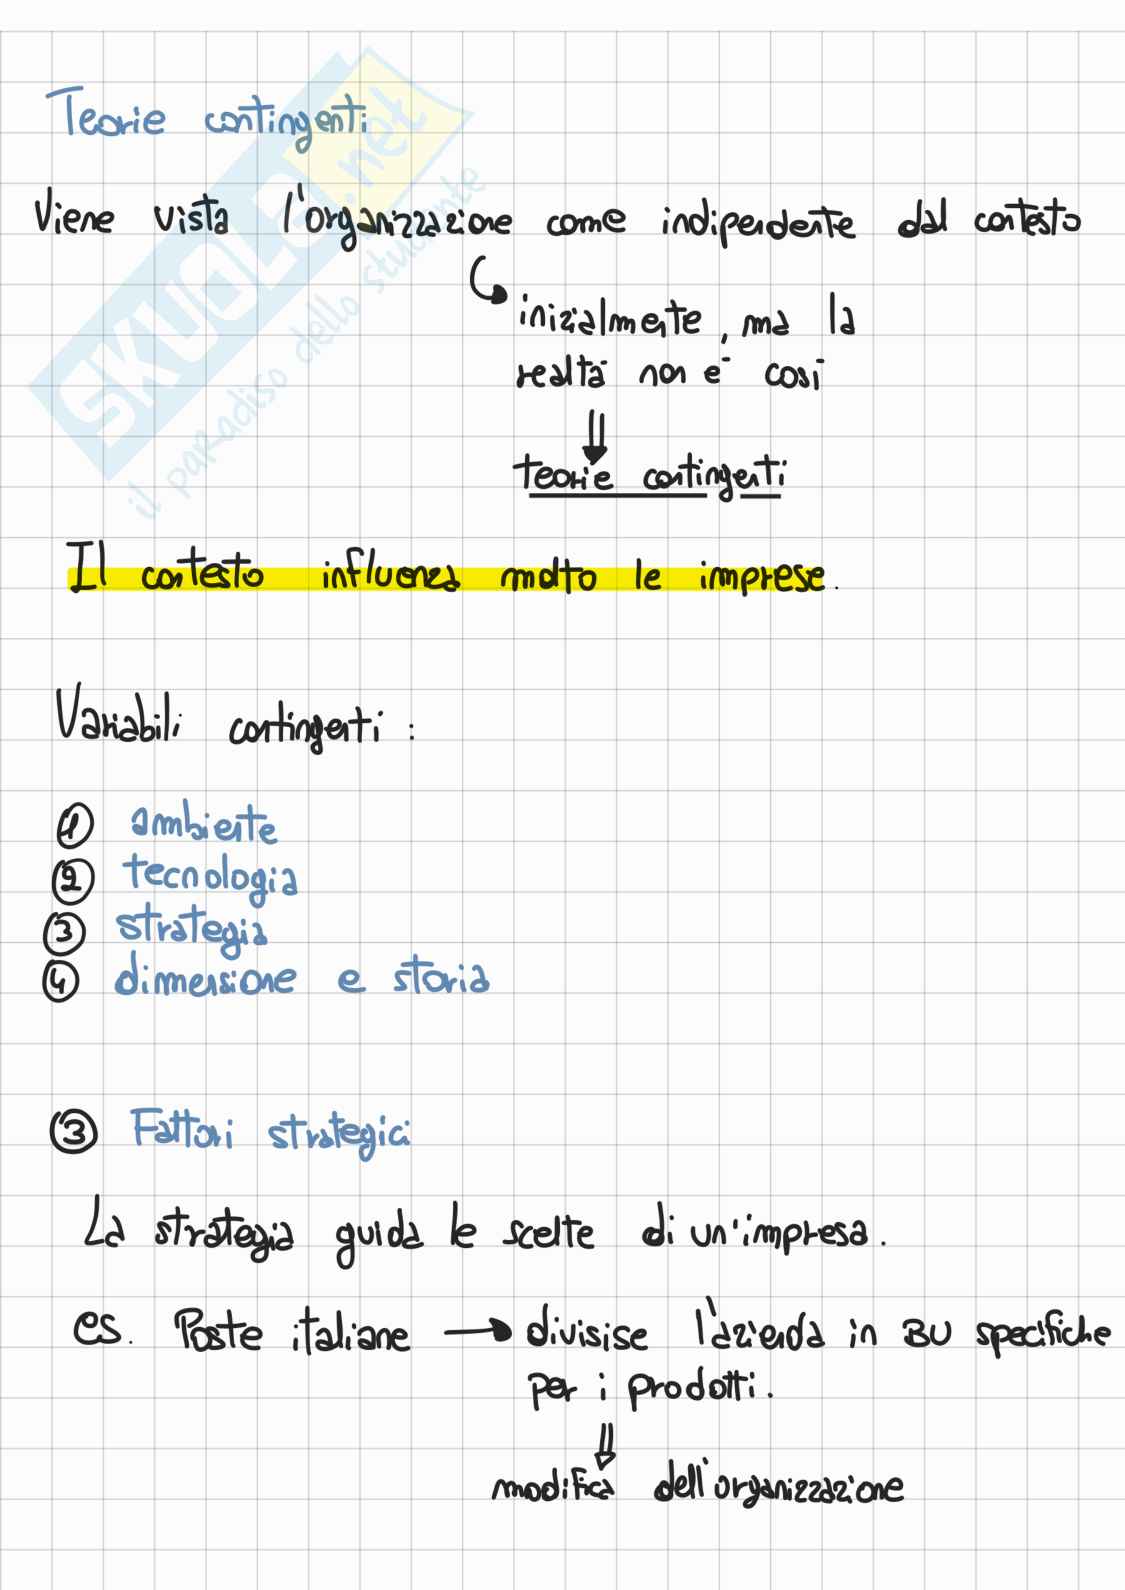 Teorie contingenti
Viene vista l'organizzazione come indipendente dal contesto
inizialmente, ma la
realtà non è così
teorie contingenti
Il contesto influenza molto le imprese.
Variabili contingenti:
1 ambiente
2 tecnologia
3 strategia
4 dimensione e storia
3 Fattori strategici
La strategia guida le scelte di un'impresa.
es. Poste italiane → divisise l'azienda in BU specifiche
per i prodotti.
modifica dell'organizzazione
SKUOLA.net
il paradiso dello studente